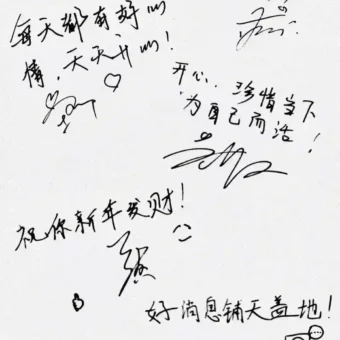 每天都有好心
情，天天开心！
开心，珍惜当下
为自己而活！
祝你新年发财！
好消息铺天盖地！